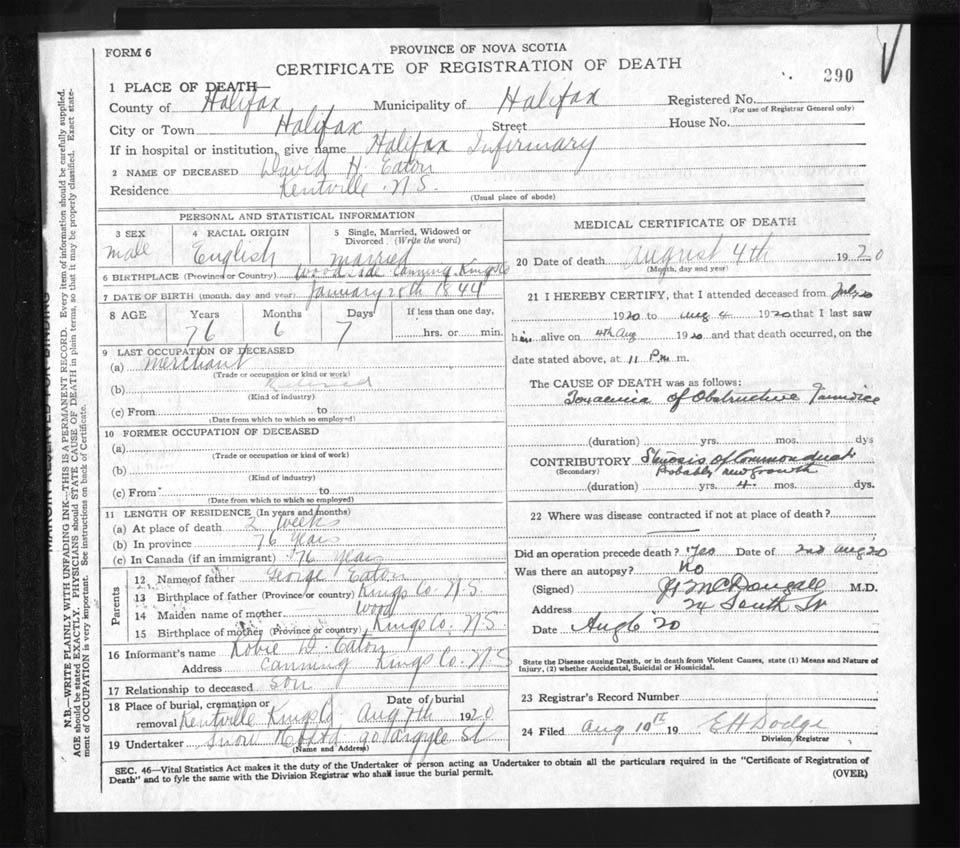 FORM 6
PROVINCE OF NOVA SCOTIA
CERTIFICATE OF REGISTRATION OF DEATH
290
1 PLACE OF DEATH—
County of Halifax Municipality of Halifax Registered No.
(For use of Registrar General only)
City or Town Halifax Street House No.
If in hospital or institution, give name Halifax Infirmary
2 NAME OF DECEASED David H. Eaton
Residence Kentville N.S.
(Usual place of abode)
PERSONAL AND STATISTICAL INFORMATION
3 SEX 4 RACIAL ORIGIN 5 Single, Married, Widowed or Divorced. (Write the word)
male English married
6 BIRTHPLACE (Province or Country) Woodside Canning Kings Co
7 DATE OF BIRTH (month, day and year) January 28th 1844
8 AGE Years Months Days If less than one day,
76 6 7 hrs. or min.
9 LAST OCCUPATION OF DECEASED
(a) Merchant
(Trade or occupation or kind or work)
(b) Retired
(Kind of industry)
(c) From to
(Date from which to which so employed)
10 FORMER OCCUPATION OF DECEASED
(a)
(Trade or occupation or kind of work)
(b)
(Kind of industry)
(c) From to
(Date from which to which so employed)
11 LENGTH OF RESIDENCE (In years and months)
(a) At place of death 2 weeks
(b) In province 76 years
(c) In Canada (if an immigrant) 76 years
Parents
12 Name of father George Eaton
13 Birthplace of father (Province or country) Kings Co. N.S.
14 Maiden name of mother Wood
15 Birthplace of mother (Province or country) Kings Co. N.S.
16 Informant's name Robie W. Eaton
Address Canning Kings Co. N.S
17 Relationship to deceased Son
18 Place of burial, cremation or removal Kentville Kings Co. Date of burial Aug 7th 1920
19 Undertaker Snow & Co Ltd 90 Argyle St
(Name and Address)
MEDICAL CERTIFICATE OF DEATH
20 Date of death August 4th 1920
(Month, day and year)
21 I HEREBY CERTIFY, that I attended deceased from July 20
1920 to Aug 4 1920 that I last saw
him alive on 4th Aug 1920 and that death occurred, on the
date stated above, at 11 P.m. m.
The CAUSE OF DEATH was as follows:
Toxaemia of Obstructive Jaundice
(duration) yrs. mos. dys
CONTRIBUTORY Stenosis of Common duct
(Secondary) Probably new growth
(duration) yrs. 4 mos. dys.
22 Where was disease contracted if not at place of death?
Did an operation precede death? Yes Date of 2nd Aug 20
Was there an autopsy? No
(Signed) McDougall M.D.
Address 24 South St
Date Aug 6 '20
State the Disease causing Death, or in death from Violent Causes, state (1) Means and Nature of
Injury, (2) whether Accidental, Suicidal or Homicidal.
23 Registrar's Record Number
24 Filed Aug 10 19 E H Dodge
Division Registrar
SEC. 46—Vital Statistics Act makes it the duty of the Undertaker or person acting as Undertaker to obtain all the particulars required in the "Certificate of Registration of
Death" and to fyle the same with the Division Registrar who shall issue the burial permit.
(OVER)
MARGIN RESERVED FOR BINDING
N.B.—WRITE PLAINLY WITH UNFADING INK—THIS IS A PERMANENT RECORD. Every item of information should be carefully supplied.
AGE should be stated EXACTLY. PHYSICIANS should STATE CAUSE OF DEATH in plain terms, so that it may be properly classified. Exact state-
ment of OCCUPATION is very important. See instructions on back of Certificate.